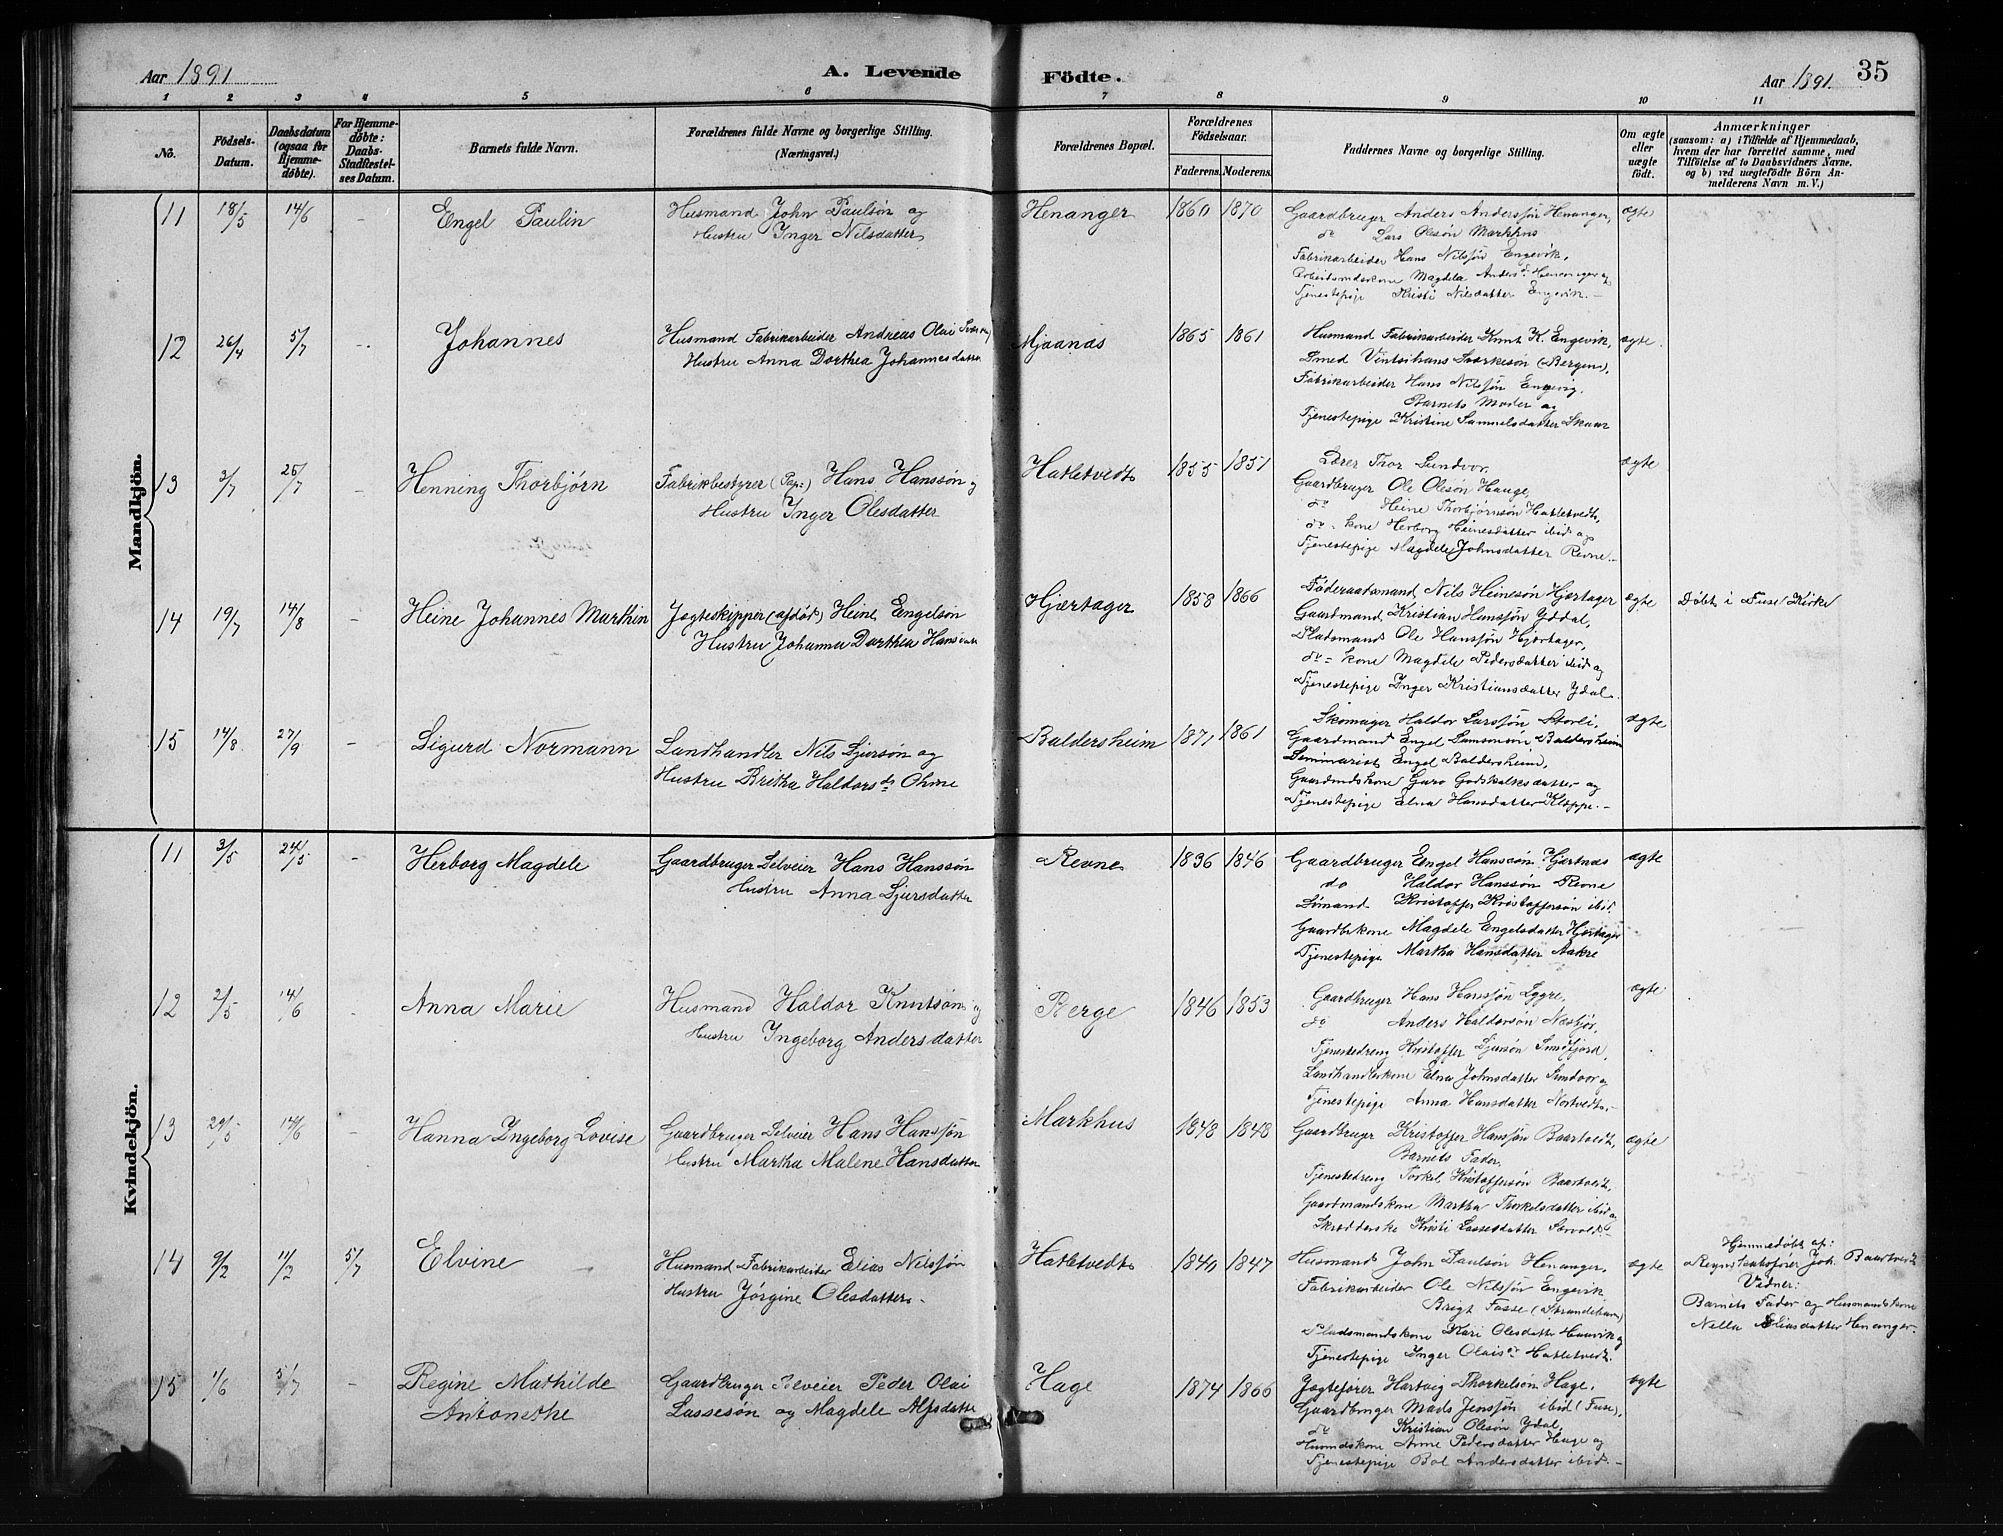 Aar 1891
A. Levende
Födte.
Aar 1891. 35
1 2 3 4 5 6 7 8 9 10 11
No.
Födsels-Datum.
Daabsdatum (ogsaa for Hjemme-døbte).
For Hjemme-døbte: Daabs-Stadfæstel-ses Datum.
Barnets fulde Navn.
Forældrenes fulde Navne og borgerlige Stilling.
(Næringsvei.)
Forældrenes Bopæl.
Forældrenes Födselsaar.
Faderens. Moderens.
Faddernes Navne og borgerlige Stilling.
Om ægte eller uægte födt.
Anmærkninger
(saasom: a) i Tilfælde af Hjemmedaab,
hvem der har forrettet samme, med
Tilföielse af to Daabsvidners Navne,
og b) ved uægtefödte Börn An-
melderens Navn m. V.)
Mandkjön.
11 18/5 14/6 - Engel Paulin
Husmand John Paulsön og
Hustru Inger Nilsdatter
Henanger 1860 1870
Gaardbruger Anders Andersön Henanger,
do Lars Olesön Markhus
Fabrikarbeider Hans Nilsjön Engevik,
Arbeidsmdskone Magdela Andersd. Henanger og
Tjenestepige Kristi Nilsdatter Engevik.-
ægte
12 26/4 5/7 - Johannes
Husmand Fabrikarbeider Andreas Olai
Hustru Anna Dorthea Johannesdatter
Mjaanæs 1865 1861
Husmand Fabrikarbeider Knut K. Engevik,
Smed Sverkesön (Bergen),
Fabrikarbeider Hans Nilsjön Engevig.
Barnets Moder og
Tjenestepige Kristine Samuelsdatter Skaar
ægte.
13 3/7 26/7 - Henning Thorbjørn
Fabrikbestyrer (Pap:) Hans Hanssön og
Hustru Inger Olesdatter
Hatletvedt 1855 1851
Lærer Thor Sundvor,
Gaardbruger Ole Olesön Hauge,
do Heine Thorbjörnsön Hatletvedt,
do - kone Herborg Heinesdatter ibid og
Tjenestepige Magdele Johnsdatter Revne.-
ægte
14 19/7 14/8 - Heine Johannes Marthin
Jagteskipper (afdöd) Heine Engelsön
Hustru Johanna Dorthea Hansdatter
Hjærtager 1858 1866
Föderaadsmand Nils Heinesön Hjertager
Gaardmand Kristian Hansjön Yddal,
Pladsmand Ole Hansjön Hjertager,
do - kone Magdele Pedersdatter ibid og
Tjenestepige Inger Kristiansdatter Ydal.
ægte
Döbt i Fuse Kirke
15 14/8 27/9 - Sigurd Normann
Landhandler Nils Sjursön og
Hustru Britha Haldorsdr Ohme
Baldersheim 1871 1861
Skomager Haldor Larsjön Storli,
Gaardmand Engel Samsonsön Baldersheim
Seminarist Engel Baldersheim,
Gaardmdskone Guro Godskalksdatter og
Tjenestepige Elna Hansdatter Kleppe.-
ægte
Kvindekjön.
11 3/5 24/5 - Herborg Magdele
Gaardbruger Selveier Hans Hanssön
Hustru Anna Sjursdatter
Revne 1836 1846
Gaardbruger Engel Hanssön Hjertnæs
do Haldor Hanssön Revne
Sömand Kristoffer Kristoffersön ibid.
Gaardbkone Magdele Engelsdatter Hjertager
Tjenestepige Martha Hansdatter Aakre
ægte
12 2/5 14/6 - Anna Marie
Husmand Haldor Knutsön og
Hustru Ingeborg Andersdatter
Berge 1846 1853
Gaardbruger Hans Hansjön Eggre,
do Anders Haldorsön
Tjenestedreng Kristoffer Sjursön
Landhandlerkone Elna Johnsdatter Sundvor og
Tjenestepige Anna Hansdatter Nortvedt.-
ægte
13 29/5 14/6 - Hanna Ingeborg Lovise
Gaardbruger Selveier Hans Hansjön
Hustru Martha Malene Hansdatter
Markhus 1848 1848
Gaardbruger Kristoffer Hansjön Baartvedt,
Barnets Fader,
Tjenestedreng Torkel Kristoffersön Baartvedt,
Gaardmandskone Martha Thorkelsdatter ibid og
Skrædderske Kristi Lassesdatter
ægte
14 9/2 14/2 5/7 Elvine
Husmand Fabrikarbeider Elias Nilsjön
Hustru Jörgine Olesdatter.
Hatletvedt 1840 1847
Husmand John Paulsön Henanger,
Fabrikarbeider Ole Nilsjön Engevik
Brigt Fosse (Strandebarm)
Pladsmandskone Kari Olesdatter Haavik og
Tjenestepige Inger Olaisdr Hatletvedt.
ægte
Hjemmedöbt af:
Joh. Baartvedt
Vidner:
Barnets Fader og Husmandskone
Nella Eliasdatter Henanger.
15 1/6 5/7 - Regine Mathilde
Antonethe
Gaardbruger Selveier Peder Olai
Lassesön og Magdele Alfsdatter
Hage 1874 1866
Jagtefører Hartvig Thorkelsön Hage,
Gaardbruger Mads Jensjön ibid (Fuse),
do Kristian Olesön Ydal,
Husmdskone Anne Pedersdatter Hage og
Tjenestepige Bol Andersdatter ibid.-
ægte